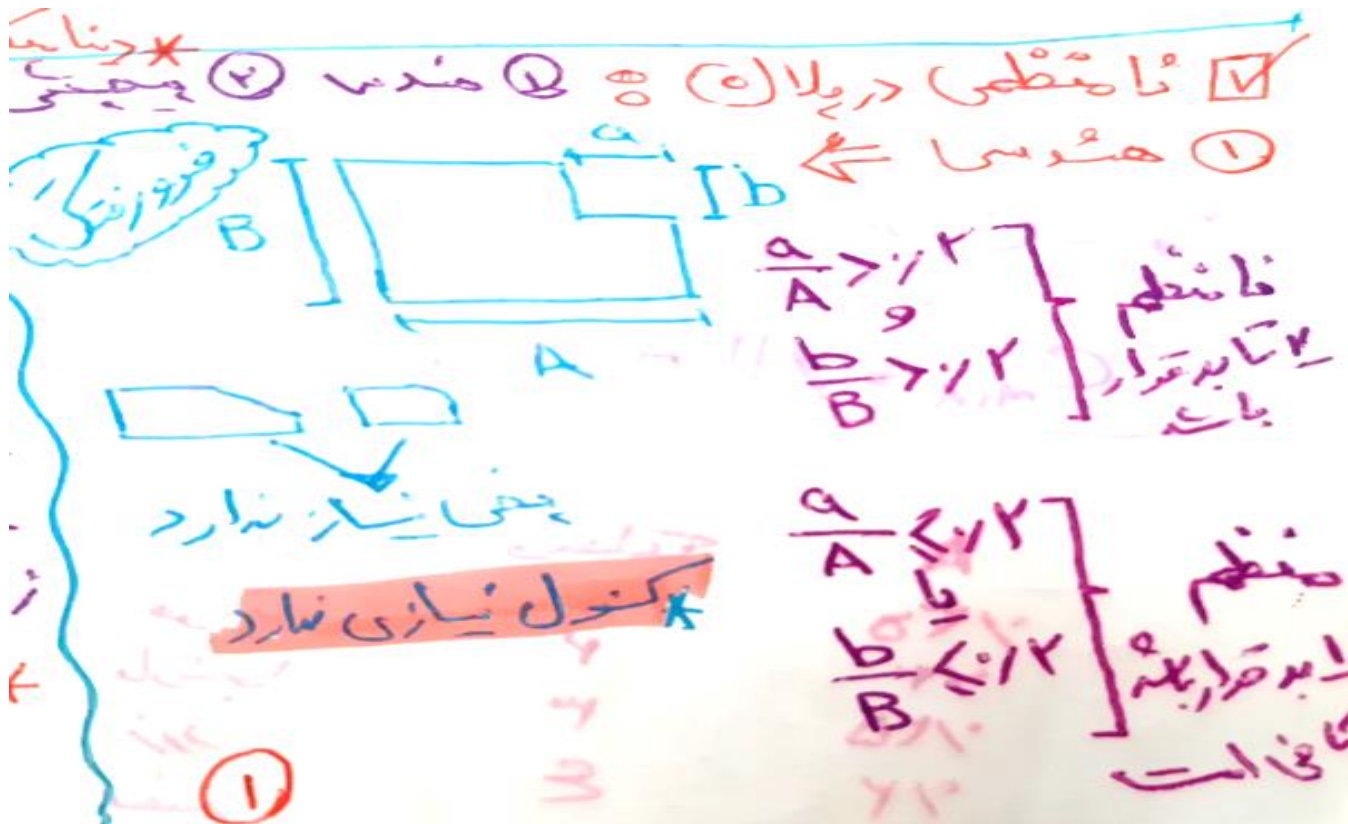 * دینامیک
☑ نامنظمی در پلان : ① هندسی ② پیچشی
① هندسی ⇐
a
b
B
A
a/A > ٠/٢
و
b/B > ٠/٢
نامنظم
٢ تا برقرار
باشد
یعنی نیاز ندارد
* کنترل نیازی ندارد
a/A ≤ ٠/٢
یا
b/B ≤ ٠/٢
منظم
١ برقرار باشه
کافی است
①